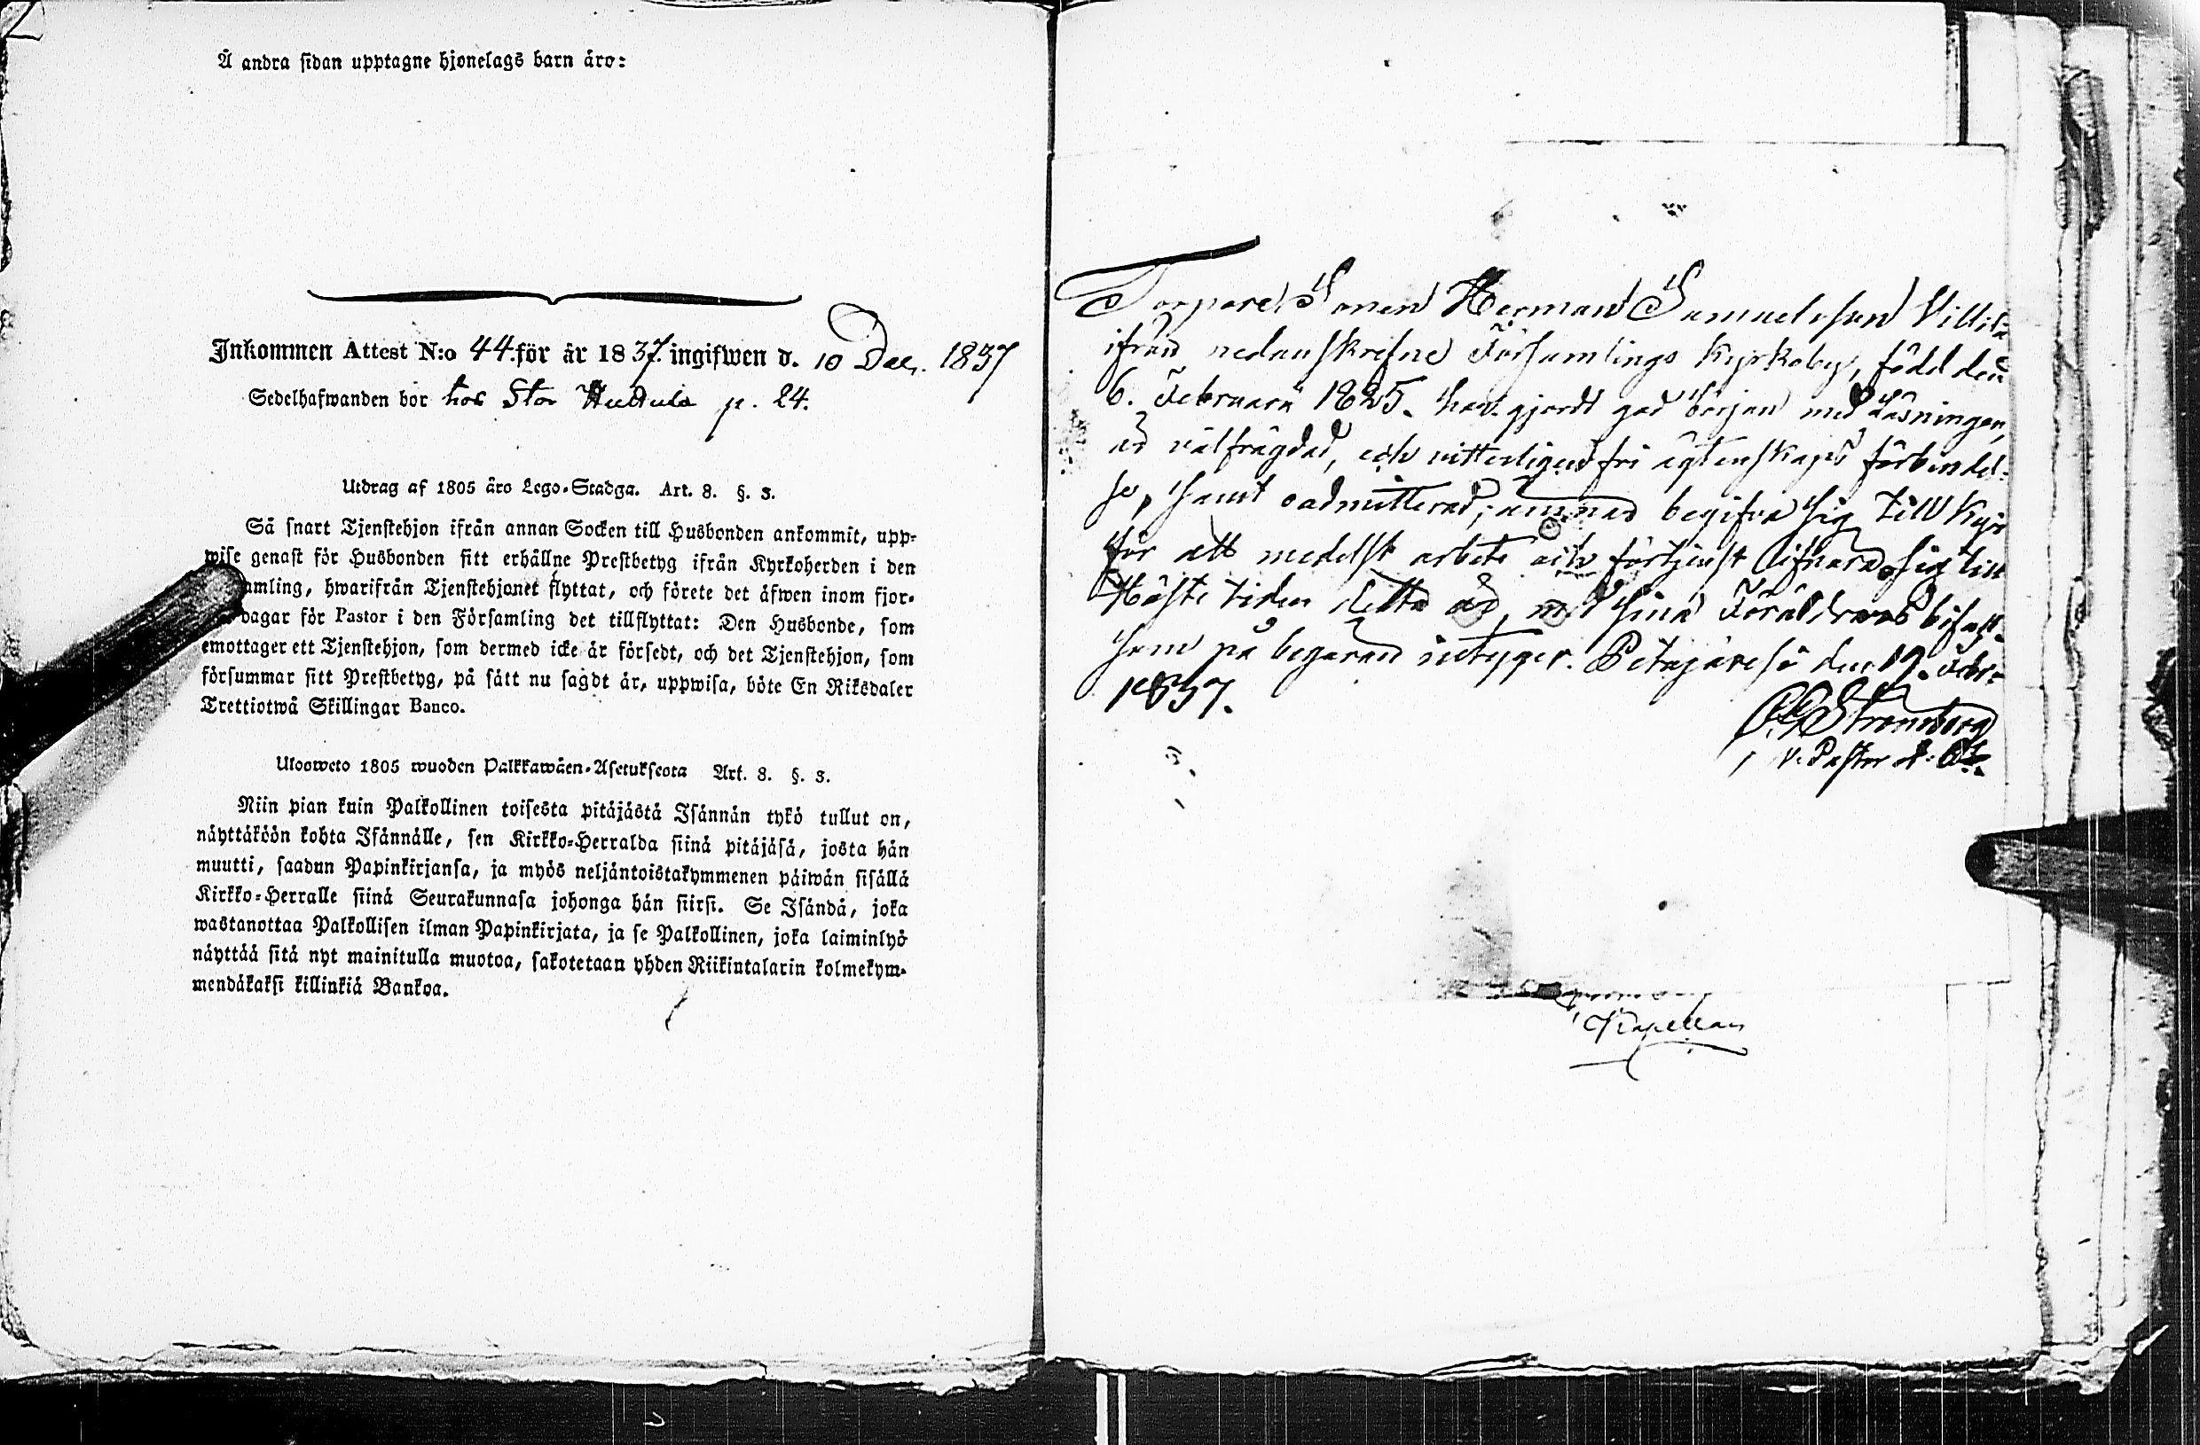 Å andra sidan upptagne hjonelags barn äro:
Inkommen Attest N:o 44. för år 1837. ingifwen d. 10 Dec. 1837
Sedelhafwanden bor hos Stor p. 24.
Utdrag af 1805 års Lego-Stadga. Art. 8. §. 3.
Så snart Tjenstehjon ifrån annan Socken till Husbonden ankommit, upp-
wise genast för Husbonden sitt erhållne Prestbetyg ifrån Kyrkoherden i den
amling, hwarifrån Tjenstehjonet flyttat, och förete det äfwen inom fjor-
dagar för Pastor i den Församling det tillflyttat: Den Husbonde, som
emottager ett Tjenstehjon, som dermed icke är försedt, och det Tjenstehjon, som
försummar sitt Prestbetyg, på sätt nu sagdt är, uppwisa, böte En Riksdaler
Trettiotwå Skillingar Banco.
Ulosweto 1805 wuoden Palkkawäen-Asetuksesta Art. 8. §. 3.
Niin pian kuin Palkollinen toisesta pitäjästä Isännän tykö tullut on,
näyttäköön kohta Isännälle, sen Kirkko-Herralda siinä pitäjäsä, josta hän
muutti, saadun Papinkirjansa, ja myös neljäntoistakymmenen päiwän sisällä
Kirkko-Herralle siinä Seurakunnasa johonga hän siirsi. Se Isändä, joka
wastanottaa Palkollisen ilman Papinkirjata, ja se Palkollinen, joka laiminlyö
näyttää sitä nyt mainitulla muotoa, sakotetaan yhden Riikintalarin kolmekym-
mendäkaksi killinkiä Bankoa.
Torpare Sonen Herman Samuelsson
ifrån nedanskrefne Församlings Kyrkoby, född den
6. Februarii 1825. har gjordt god början med Läsningen,
är välfrägdad, och vitterligen fri ägtenskaps förbindel-
se, samt oadmitterad; ämnar begifva sig till
för att medelst arbete och förtjenst lifnära sig till
Höste tiden detta år, med sina Föräldrars
som på begäran intyger. Petäjävesi den 19. Febr:
1837.
Stromberg
v. Pastor
Kapellan